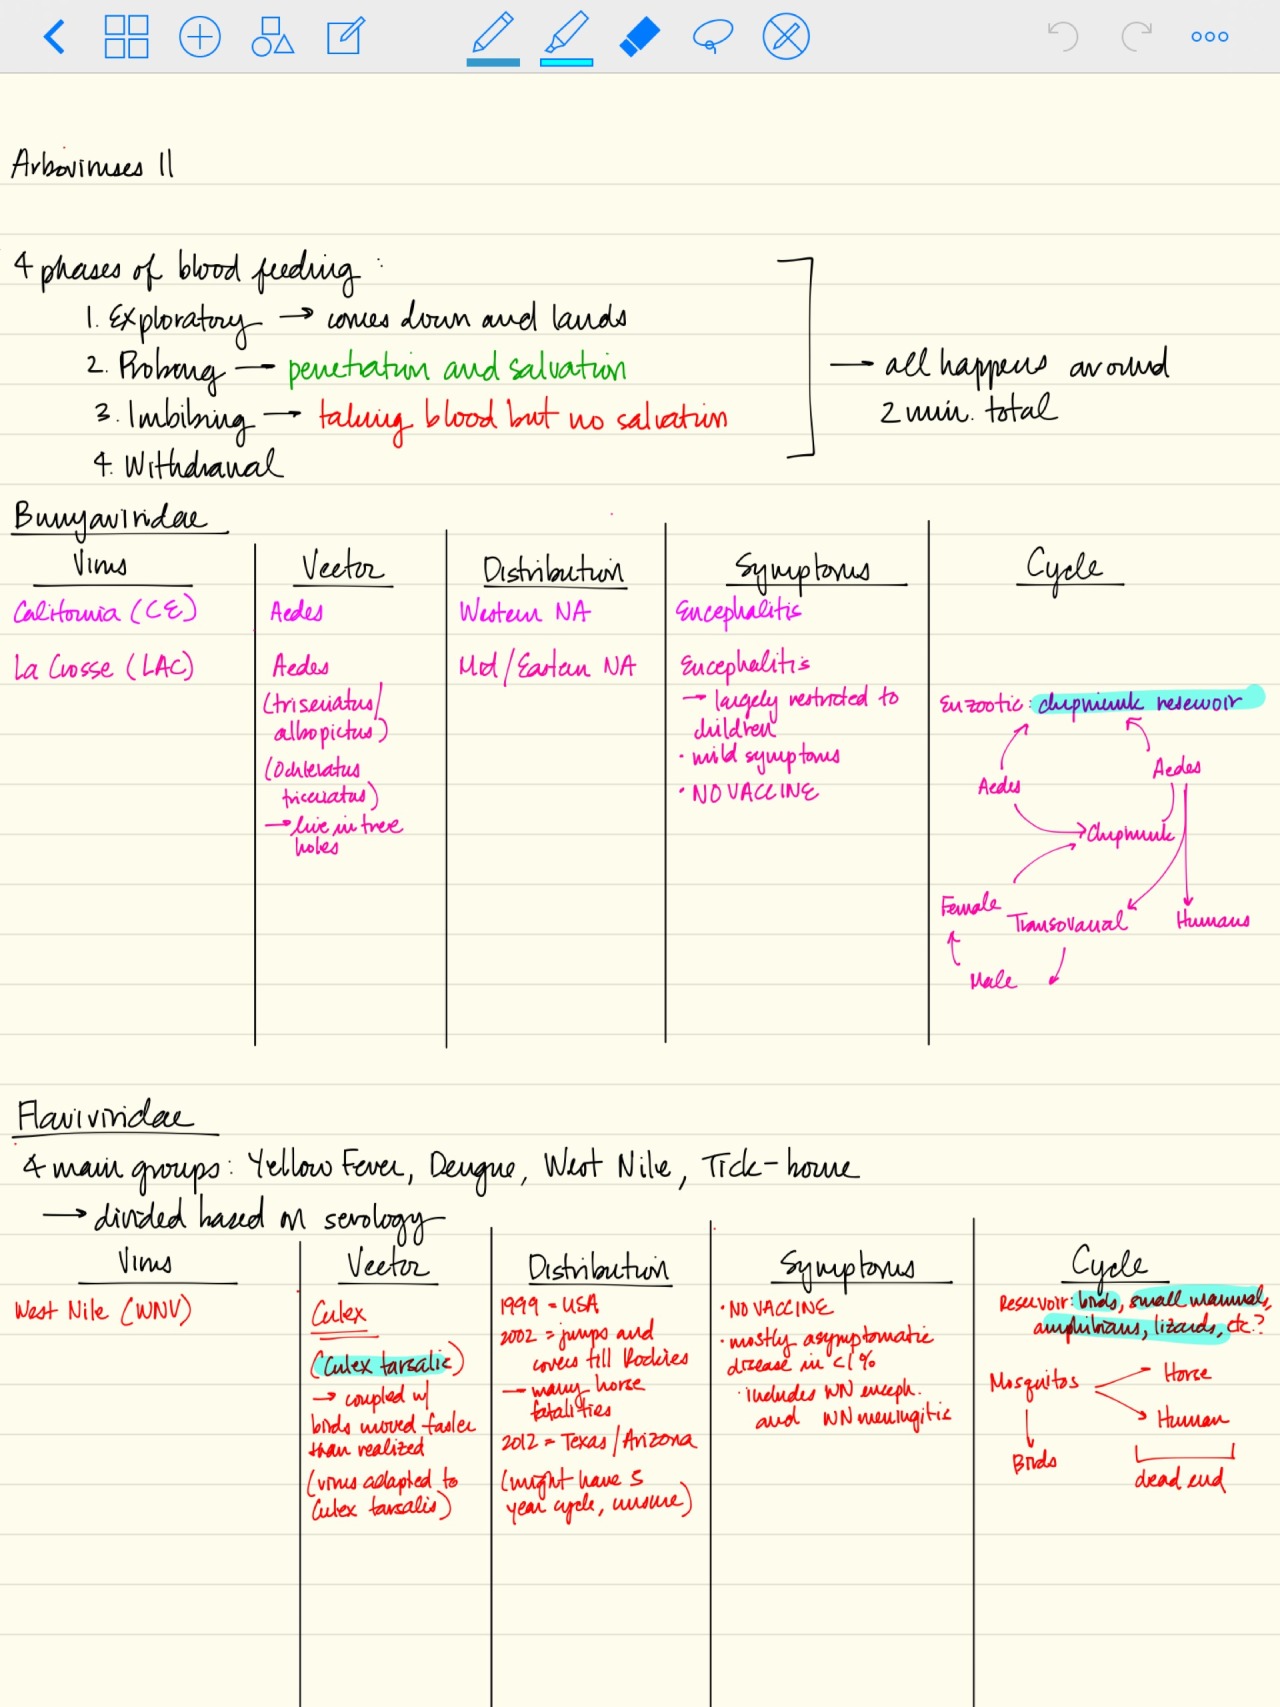 Arboviruses II
4 phases of blood feeding:
1. Exploratory → comes down and lands
2. Probing — penetration and salvation
3. Imbibing → taking blood but no salvation
4. Withdrawal
— all happens around
2 min. total
Bunyaviridae
Virus
Vector
Distribution
Symptoms
Cycle
California (CE)
Aedes
Western NA
Encephalitis
La Crosse (LAC)
Aedes
(triseriatus/
albopictus)
(Ochleratus
triceriatus)
→ live in tree
holes
Mid/Eastern NA
Encephalitis
→ largely restricted to
children
· mild symptoms
· NO VACCINE
Enzootic: chipmunk reservoir
Aedes
Aedes
Chipmunk
Female
Transovarial
Humans
Male
Flaviviridae
4 main groups: Yellow Fever, Dengue, West Nile, Tick-borne
→ divided based on serology
Virus
Vector
Distribution
Symptoms
Cycle
West Nile (WNV)
Culex
(Culex tarsalis)
→ coupled w/
birds moved faster
than realized
(virus adapted to
Culex tarsalis)
1999 = USA
2002 = jumps and
covers till Rockies
→ many horse
fatalities
2012 = Texas/Arizona
(might have 5
year cycle, unsure)
· NO VACCINE
· mostly asymptomatic
disease in <1%
· includes WN enceph.
and WN meningitis
Reservoir: birds, small mammal,
amphibians, lizards, etc?
Mosquitos
Horse
Human
Birds
dead end